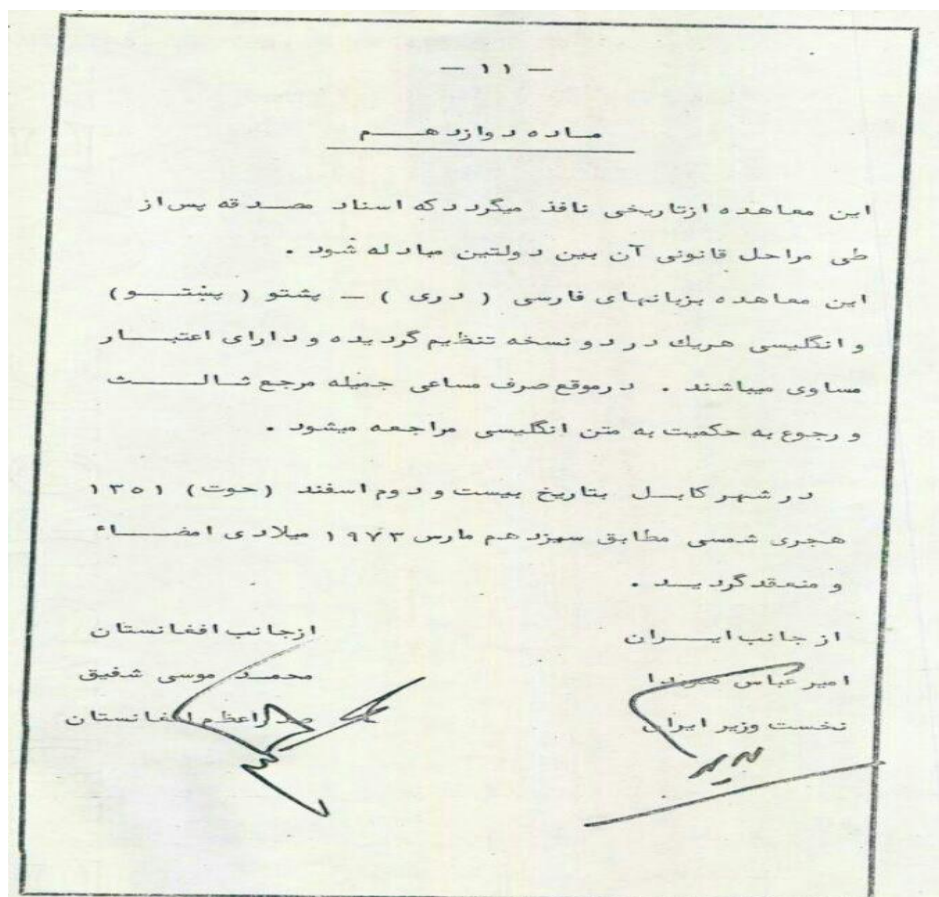 - ۱۱ -
ماده دوازدهم
این معاهده ازتاریخی نافذ میگردد که اسناد مصدقه پس از
طی مراحل قانونی آن بین دولتین مبادله شود .
این معاهده بزبانهای فارسی ( دری ) - پشتو ( پښتو )
و انگلیسی هریك در دو نسخه تنظیم گردیده و دارای اعتبار
مساوی میباشند . درموقع صرف مساعی جمیله مرجع ثالث
و رجوع به حکمیت به متن انگلیسی مراجعه میشود .
در شهر کابل بتاریخ بیست و دوم اسفند (حوت) ۱۳۵۱
هجری شمسی مطابق سیزدهم مارس ۱۹۷۳ میلادی امضاء
و منعقد گردید .
از جانب ایران ازجانب افغانستان
امیر عباس هویدا محمد موسی شفیق
نخست وزیر ایران صدراعظم افغانستان